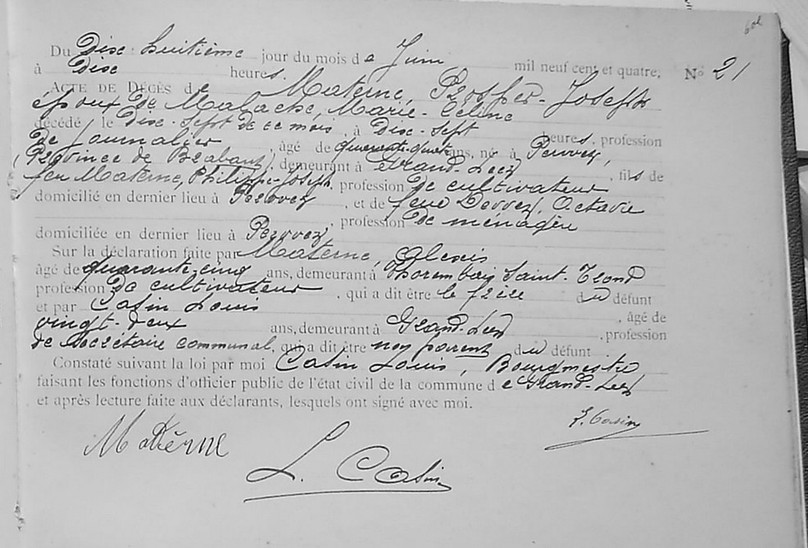 Du Disc-huitième jour du mois de Juin mil neuf cent et quatre, No 21
à Disc heures
ACTE DE DÉCÈS de Materne, Prosper-Joseph
époux de Malache, Marie-Céline
décédé le Disc-sept de ce mois, à Disc-sept heures, profession
de journalier, âgé de quarante-quatre ans, né à Perwez,
(Province de Brabant), demeurant à Grand-Leez, fils de
feu Materne, Philippe-Joseph, profession de cultivateur
domicilié en dernier lieu à Perwez, et de feue Octavie
, profession de ménagère
domiciliée en dernier lieu à Perwez,
Sur la déclaration faite par Materne, Alexis
âgé de quarante-cinq ans, demeurant à Thorembais Saint-Trond
profession de cultivateur, qui a dit être le frère du défunt
et par Casin Louis, âgé de
vingt-deux ans, demeurant à Grand-Leez, profession
de secrétaire communal, qui a dit être non parent du défunt.
Constaté suivant la loi par moi Casin Louis, Bourgmestre
faisant les fonctions d'officier public de l'état civil de la commune de Grand-Leez
et après lecture faite aux déclarants, lesquels ont signé avec moi.
Materne
L. Casin